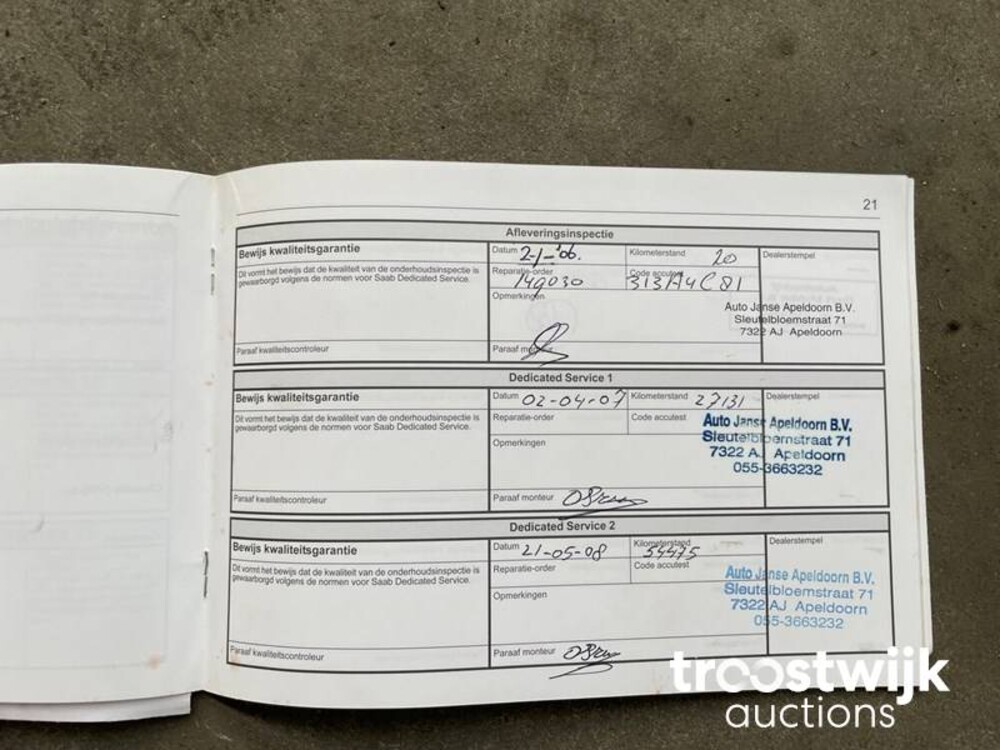 21
Afleveringsinspectie
Bewijs kwaliteitsgarantie
Dit vormt het bewijs dat de kwaliteit van de onderhoudsinspectie is
gewaarborgd volgens de normen voor Saab Dedicated Service.
Paraaf kwaliteitscontroleur
Datum 2-1-'06.
Kilometerstand 20
Dealerstempel
Reparatie-order 149030
Code accutest 313A4C81
Opmerkingen
Auto Janse Apeldoorn B.V.
Sleutelbloemstraat 71
7322 AJ Apeldoorn
Paraaf monteur
Dedicated Service 1
Bewijs kwaliteitsgarantie
Dit vormt het bewijs dat de kwaliteit van de onderhoudsinspectie is
gewaarborgd volgens de normen voor Saab Dedicated Service.
Paraaf kwaliteitscontroleur
Datum 02-04-07
Kilometerstand 27131
Dealerstempel
Reparatie-order
Code accutest
Opmerkingen
Auto Janse Apeldoorn B.V.
Sleutelbloemstraat 71
7322 AJ Apeldoorn
055-3663232
Paraaf monteur
Dedicated Service 2
Bewijs kwaliteitsgarantie
Dit vormt het bewijs dat de kwaliteit van de onderhoudsinspectie is
gewaarborgd volgens de normen voor Saab Dedicated Service.
Paraaf kwaliteitscontroleur
Datum 21-05-08
Kilometerstand 54475
Dealerstempel
Reparatie-order
Code accutest
Opmerkingen
Auto Janse Apeldoorn B.V.
Sleutelbloemstraat 71
7322 AJ Apeldoorn
055-3663232
Paraaf monteur
troostwijk
auctions